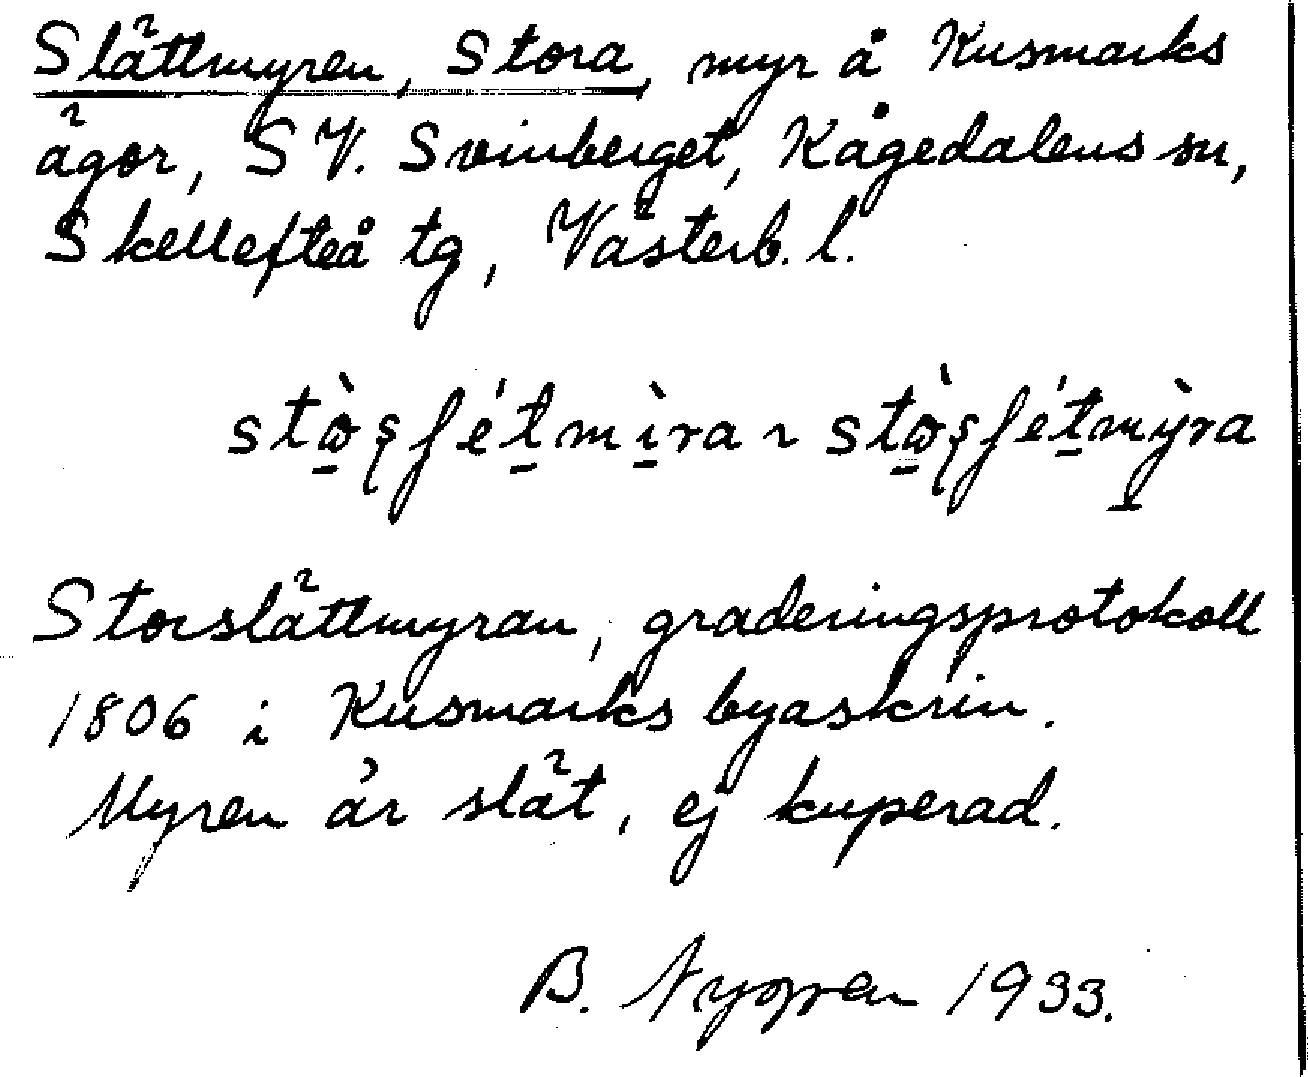 Slättmyren, Stora, myr å Kusmarks
ägor, SV. Svinberget, Kågedalens sn,
Skellefteå tg, Västerb. l.
Storslättmyran, graderingsprotokoll
1806 i Kusmarks byaskrin.
Myren är slät, ej kuperad.
B. Nygren 1933.